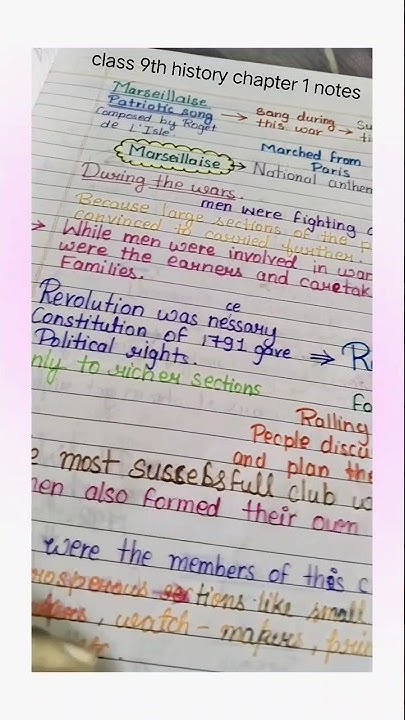 class 9th history chapter 1 notes
Marseillaise
Patriotic song
Composed by Roget
de L'Isle.
Sang during
this war
Su
ti
Marseillaise
Marched from
Paris
National anthem
During the wars.
men were fighting
Because large sections of the P
convinced to carried further.
While men were involved in war
were the earners and caretak
Families.
ce
Revolution was nessary
Constitution of 1791 gave
Political rights.
nly to richer sections
R
Fo
Ralling
People discu
and plan the
e most sussebsfull club w
men also formed their own
were the members of this c
rosperous sections like small
watch-makers, prin
etc.